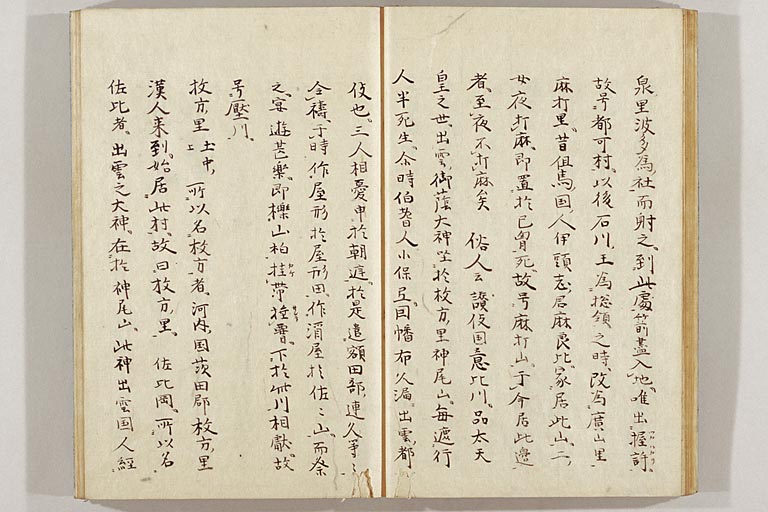 泉里波多為社而射之到此處箭盡入地唯出握許
故号都可村以後石川王為捴領之時改為廣山里
麻打里昔但馬国人伊頭志君麻良比家居此山二
女夜打麻即置於己胷死故号麻打山于今居此邊
者至夜不打麻矣 俗人云讃伎国意比川品太天
皇之世出雲御蔭大神坐於枚方里神尾山毎遮行
人半死生尒時伯耆人小保弖因幡布久漏出雲都
伎也三人相憂申於朝遣於是遣額田部連久等々
令禱于時作屋形於屋形田作酒屋於佐々山而祭
之宴遊甚樂即櫟山柏挂帶捶䙝下於此川相献故
号壓川
枚方里土中上所以名枚方者河内国茨田郡枚方里
漢人来到始居此村故曰枚方里 佐比岡所以名
佐比者出雲之大神在於神尾山此神出雲国人經